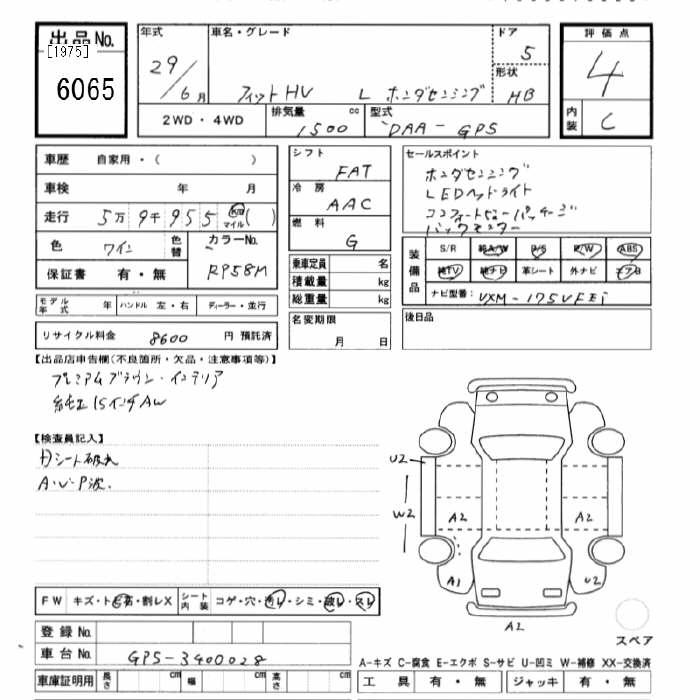 出品No.
[1975]
6065
年式
29/6月
車名・グレード
フィットHV L ホンダセンシング
ドア
5
形状
HB
評価点
4
内装
C
2WD・4WD
排気量
1500 cc
型式
DAA-GP5
車歴 自家用・( )
車検 年 月
走行 5万9千955 km マイル ( )
色 ワイン
色替
カラーNo.
RP58M
保証書 有・無
モデル年式 年
ハンドル 左・右
ディーラー・並行
リサイクル料金 8600 円 預託済
シフト
FAT
冷房
AAC
燃料
G
乗車定員 名
積載量 kg
総重量 kg
名変期限
月 日
セールスポイント
ホンダセンシング
LEDヘッドライト
コンフォートビューパッケージ
バックモニター
装備品
S/R 純A/W P/S P/W ABS
純TV 純ナビ 革シート 外ナビ エアB
ナビ型番: VXM-175VFEi
後日品
【出品店申告欄(不良箇所・欠品・注意事項等)】
プレミアムブラウン・インテリア
純正15インチAW
【検査員記入】
Dシート破れ
A・U・P波.
U2
W2
A2
A2
A1
U2
A2
スペア
FW キズ・ト ・割レX
シート内装 コゲ・穴・汚レ・シミ・破レ・スレ
登録No.
車台No. GP5-3400028
車庫証明用 長さ cm 幅 cm 高さ cm
A-キズ C-腐食 E-エクボ S-サビ U-凹ミ W-補修 XX-交換済
工具 有・無 ジャッキ 有・無